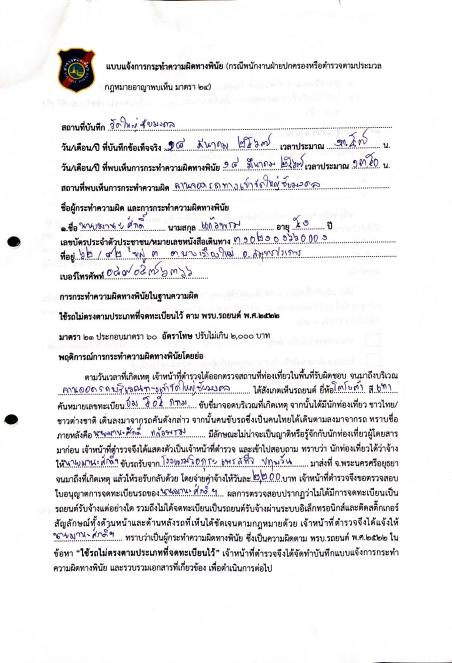 แบบแจ้งการกระทำความผิดทางพินัย (กรณีพนักงานฝ่ายปกครองหรือตำรวจตามประมวล
กฎหมายอาญาพบเห็น มาตรา ๒๔)
สถานที่บันทึก วัดใหญ่ชัยมงคล
วัน/เดือน/ปี ที่บันทึกข้อเท็จจริง ๑๘ มีนาคม ๒๕๖๗ เวลาประมาณ น.
วัน/เดือน/ปี ที่พบเห็นการกระทำความผิดทางพินัย ๑๘ มีนาคม ๒๕๖๗ เวลาประมาณ น.
สถานที่พบเห็นการกระทำความผิด ลานจอดรถทางเข้าวัดใหญ่ชัยมงคล
ชื่อผู้กระทำความผิด และการกระทำความผิดทางพินัย
๑.ชื่อ ศักดิ์ นามสกุล อายุ ปี
เลขบัตรประจำตัวประชาชน/หมายเลขหนังสือเดินทาง
ที่อยู่ หมู่ ๓ จ.สมุทรปราการ
เบอร์โทรศัพท์
การกระทำความผิดทางพินัยในฐานความผิด
ใช้รถไม่ตรงตามประเภทที่จดทะเบียนไว้ ตาม พรบ.รถยนต์ พ.ศ.๒๕๒๒
มาตรา ๒๑ ประกอบมาตรา ๖๐ อัตราโทษ ปรับไม่เกิน ๒,๐๐๐ บาท
พฤติการณ์การกระทำความผิดทางพินัยโดยย่อ
ตามวันเวลาที่เกิดเหตุ เจ้าหน้าที่ตำรวจได้ออกตรวจสถานที่ท่องเที่ยวในพื้นที่รับผิดชอบ จนมาถึงบริเวณ
ลานจอดรถบริเวณทางเข้าวัดใหญ่ชัยมงคล ได้สังเกตเห็นรถยนต์ ยี่ห้อ โตโยต้า สี เทา
คันหมายเลขทะเบียน กทม. ขับขี่มาจอดบริเวณที่เกิดเหตุ จากนั้นได้มีนักท่องเที่ยว ชาวไทย/
ชาวต่างชาติ เดินลงมาจากรถคันดังกล่าว จากนั้นคนขับรถซึ่งเป็นคนไทยได้เดินตามลงมาจากรถ ทราบชื่อ
ภายหลังคือ มีลักษณะไม่น่าจะเป็นญาติหรือรู้จักกับนักท่องเที่ยวผู้โดยสาร
มาก่อน เจ้าหน้าที่ตำรวจจึงได้แสดงตัวเป็นเจ้าหน้าที่ตำรวจ และเข้าไปสอบถาม ทราบว่า นักท่องเที่ยวได้ว่าจ้าง
ให้ ขับรถรับจาก โรงแรม ปทุมวัน มาส่งที่ จ.พระนครศรีอยุธยา
จนมาถึงที่เกิดเหตุ แล้วให้รอรับกลับด้วย โดยจ่ายค่าจ้างให้วันละ ๒๒๐๐ บาท เจ้าหน้าที่ตำรวจจึงขอตรวจสอบ
ใบอนุญาตการจดทะเบียนรถของ ผลการตรวจสอบปรากฏว่าไม่ได้มีการจดทะเบียนเป็น
รถยนต์รับจ้างแต่อย่างใด รวมถึงไม่ได้จดทะเบียนเป็นรถยนต์รับจ้างผ่านระบบอิเล็กทรอนิกส์และติดสติ๊กเกอร์
สัญลักษณ์ทั้งด้านหน้าและด้านหลังรถที่เห็นได้ชัดเจนตามกฎหมายด้วย เจ้าหน้าที่ตำรวจจึงได้แจ้งให้
ทราบว่าเป็นผู้กระทำความผิดทางพินัย ซึ่งเป็นความผิดตาม พรบ.รถยนต์ พ.ศ.๒๕๒๒ ใน
ข้อหา "ใช้รถไม่ตรงตามประเภทที่จดทะเบียนไว้" เจ้าหน้าที่ตำรวจจึงได้จัดทำบันทึกแบบแจ้งการกระทำ
ความผิดทางพินัย และรวบรวมเอกสารที่เกี่ยวข้อง เพื่อดำเนินการต่อไป